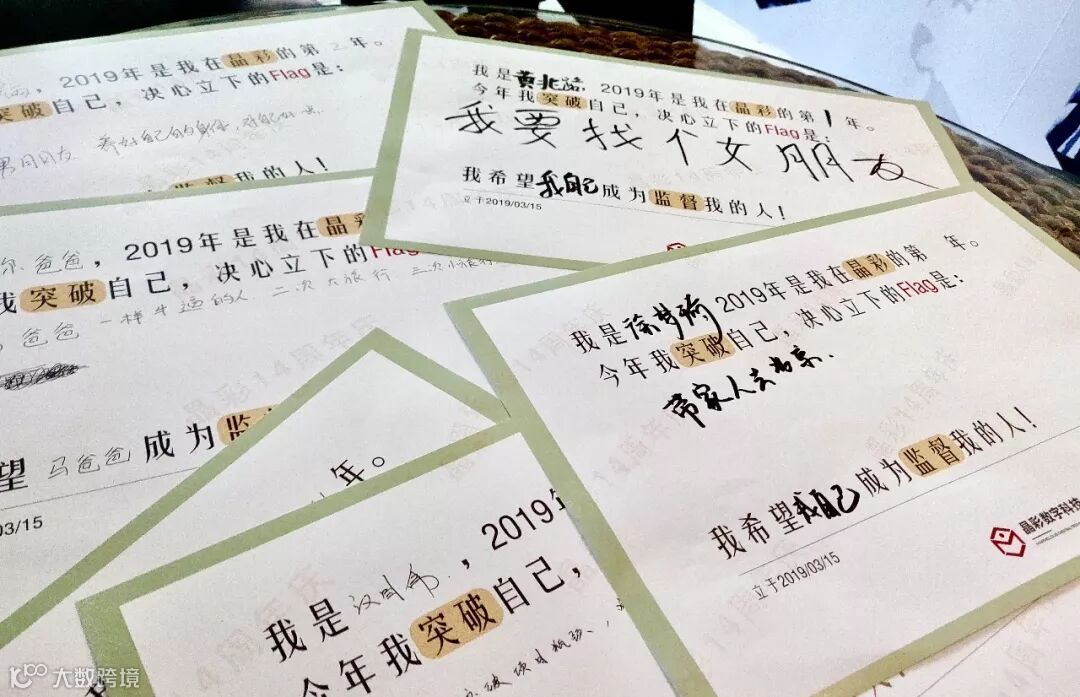 2019年是我在晶彩的第2年。
突破自己，决心立下的Flag是：
男朋友 养好自己的身体，对自己好点
监督我的人！
我是黄兆 2019年是我在晶彩的第1年。
今年我突破自己，决心立下的Flag是：
我要找个女朋友
我希望我自己成为监督我的人！
立于2019/03/15
爸爸，2019年是我在晶彩
我突破自己，决心立下的Flag
爸爸一样牛逼的人 二次大旅行 三次小旅行
望马爸爸成为监
03/15
年。
我是徐梦琦 2019年是我在晶彩的第 年。
今年我突破自己，决心立下的Flag是：
带家人去
我希望我自己成为监督我的人！
立于2019/03/15
晶彩数字科技
我是汉国 ，2019年
今年我突破自己，
晶彩14周年庆
大数跨境